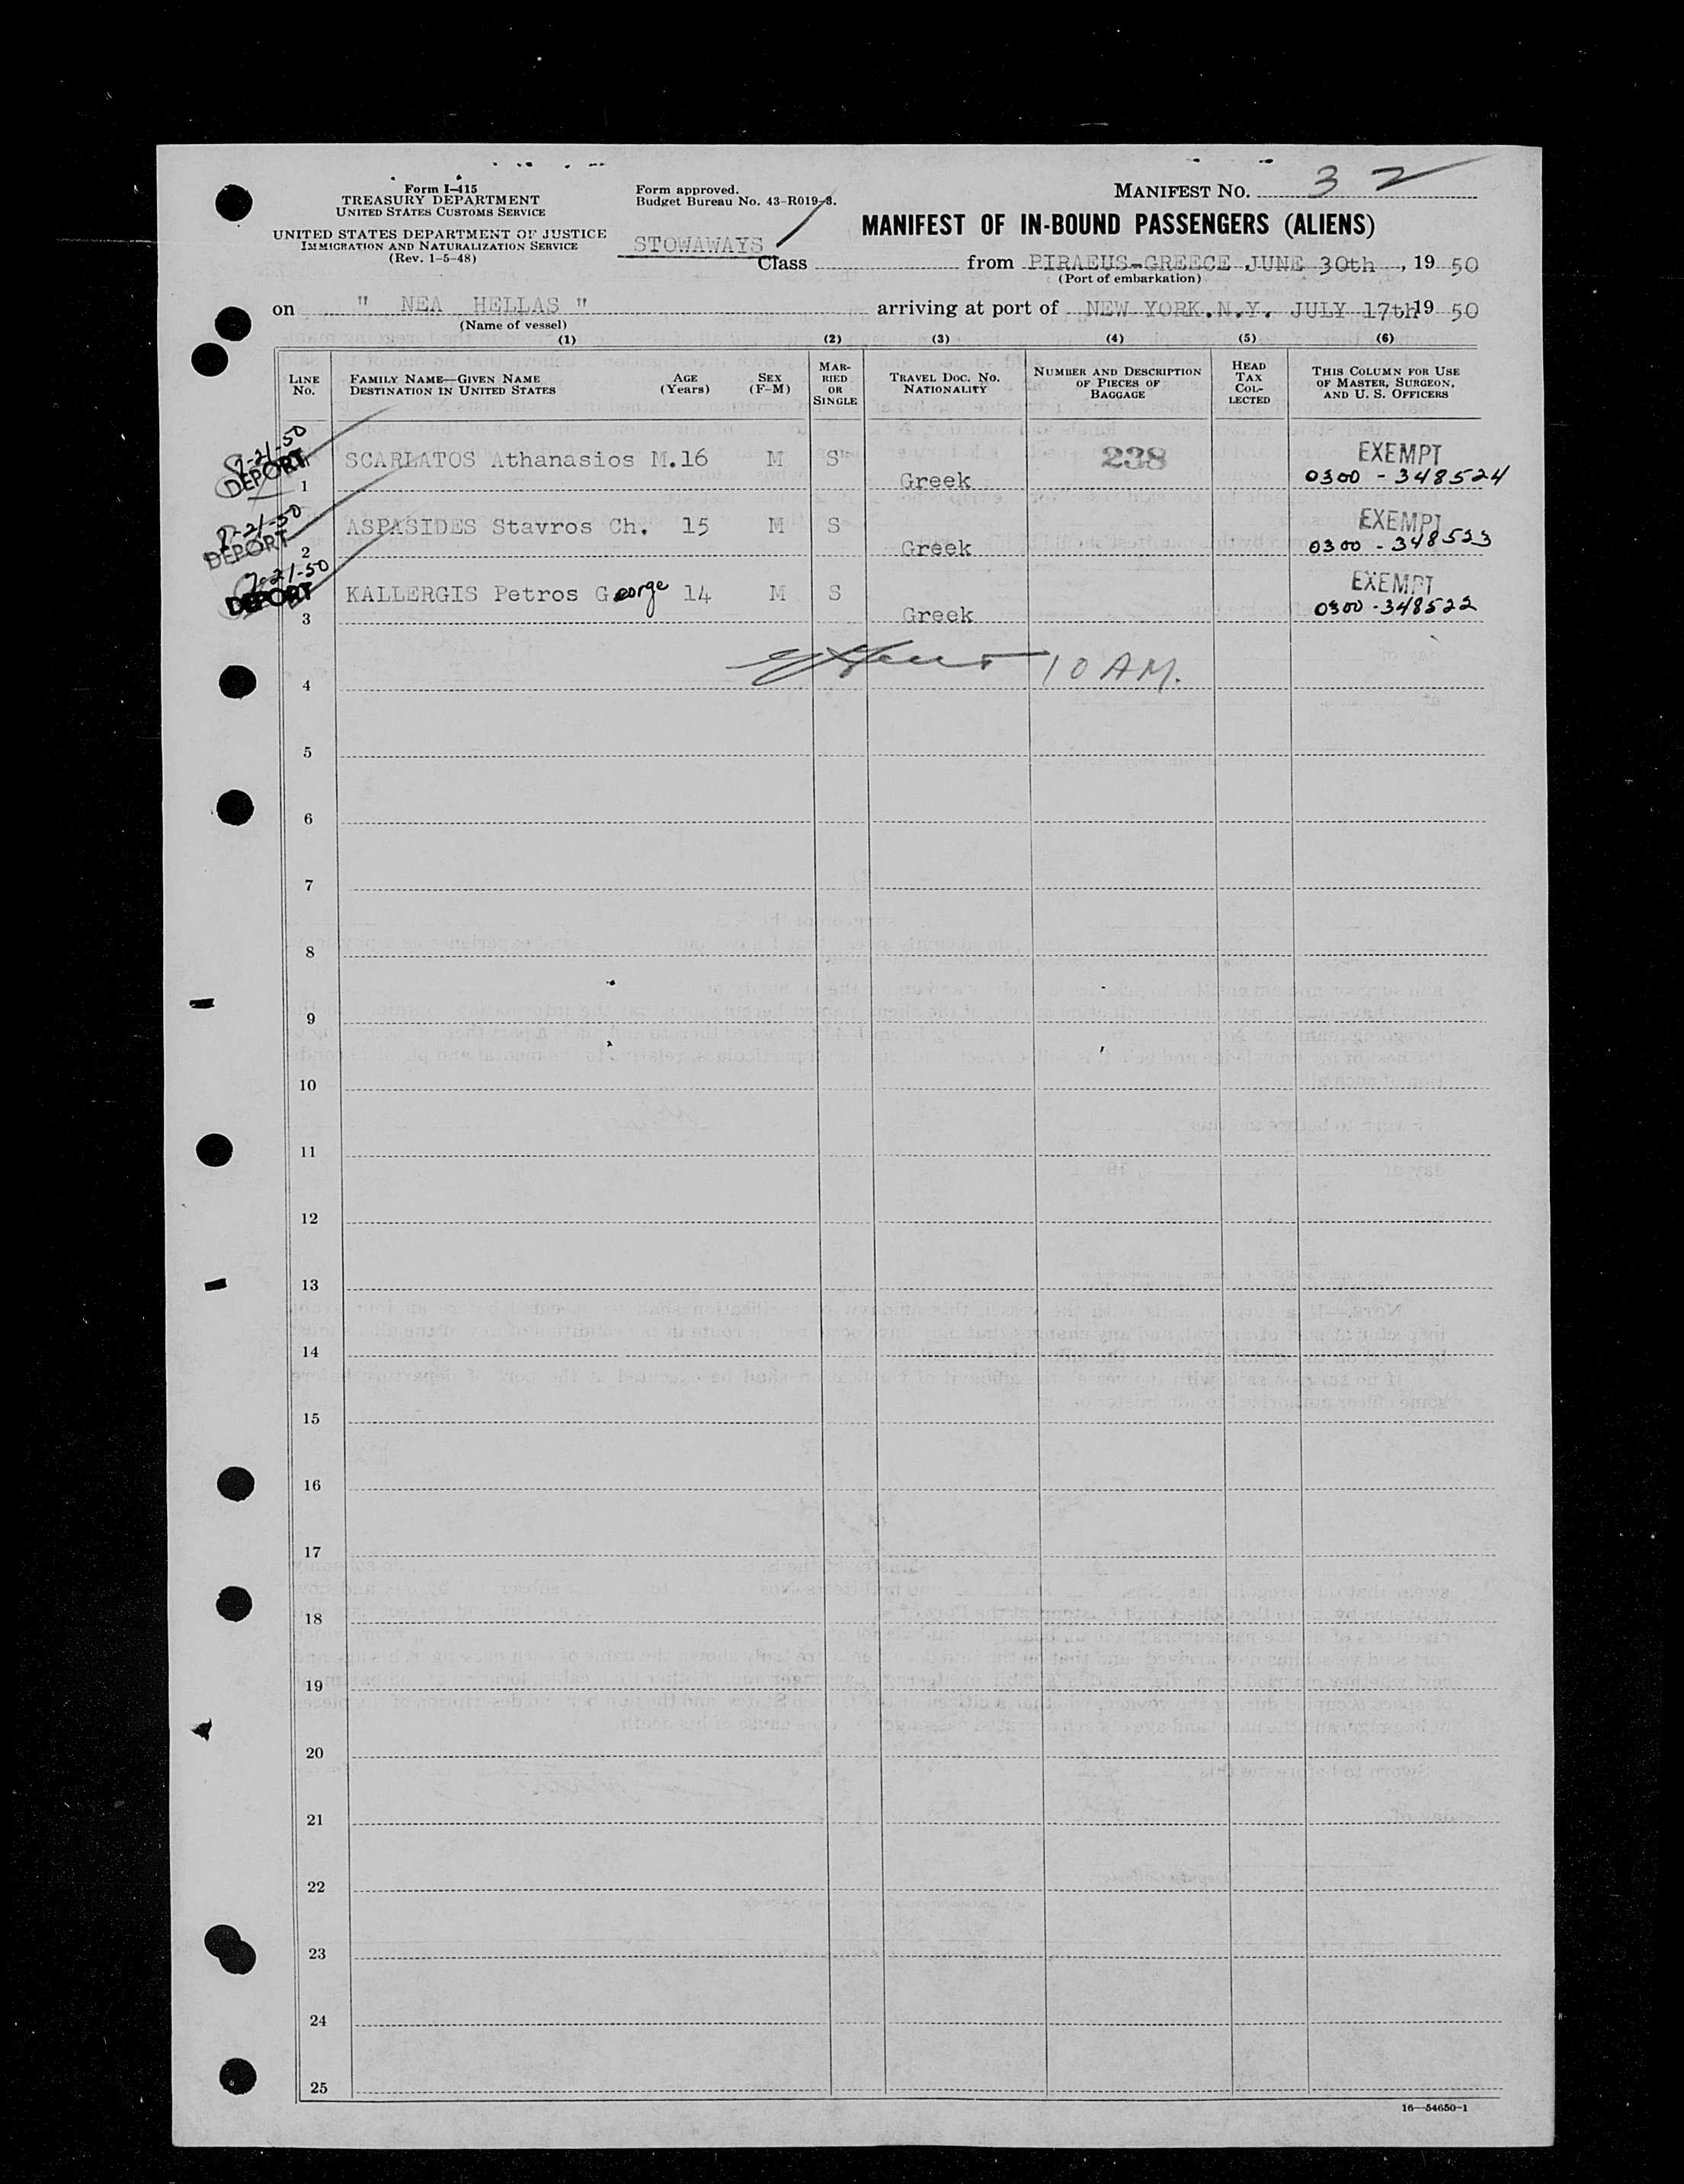 Form I-415
TREASURY DEPARTMENT
UNITED STATES CUSTOMS SERVICE
UNITED STATES DEPARTMENT OF JUSTICE
IMMIGRATION AND NATURALIZATION SERVICE
(Rev. 1-5-48)
Form approved.
Budget Bureau No. 43-R019-3.
MANIFEST NO. 32
MANIFEST OF IN-BOUND PASSENGERS (ALIENS)
STOWAWAYS
Class from PIRAEUS-GREECE JUNE 30th, 19 50
(Port of embarkation)
on " NEA HELLAS " arriving at port of NEW YORK.N.Y. JULY 17th 19 50
(Name of vessel)
(1) (2) (3) (4) (5) (6)
LINE No.
FAMILY NAME—GIVEN NAME
DESTINATION IN UNITED STATES
AGE (Years)
SEX (F-M)
MARRIED OR SINGLE
TRAVEL DOC. NO. NATIONALITY
NUMBER AND DESCRIPTION OF PIECES OF BAGGAGE
HEAD TAX COLLECTED
THIS COLUMN FOR USE OF MASTER, SURGEON, AND U. S. OFFICERS
-21-50
DEPORT
1 SCARLATOS Athanasios M. 16 M S Greek 238 EXEMPT
0300 - 348524
-21-50
DEPORT
2 ASPASIDES Stavros Ch. 15 M S Greek EXEMPT
0300 - 348523
-21-50
DEPORT
3 KALLERGIS Petros George 14 M S Greek EXEMPT
0300 - 348522
10 AM.
4
5
6
7
8
9
10
11
12
13
14
15
16
17
18
19
20
21
22
23
24
25
16—54650-1